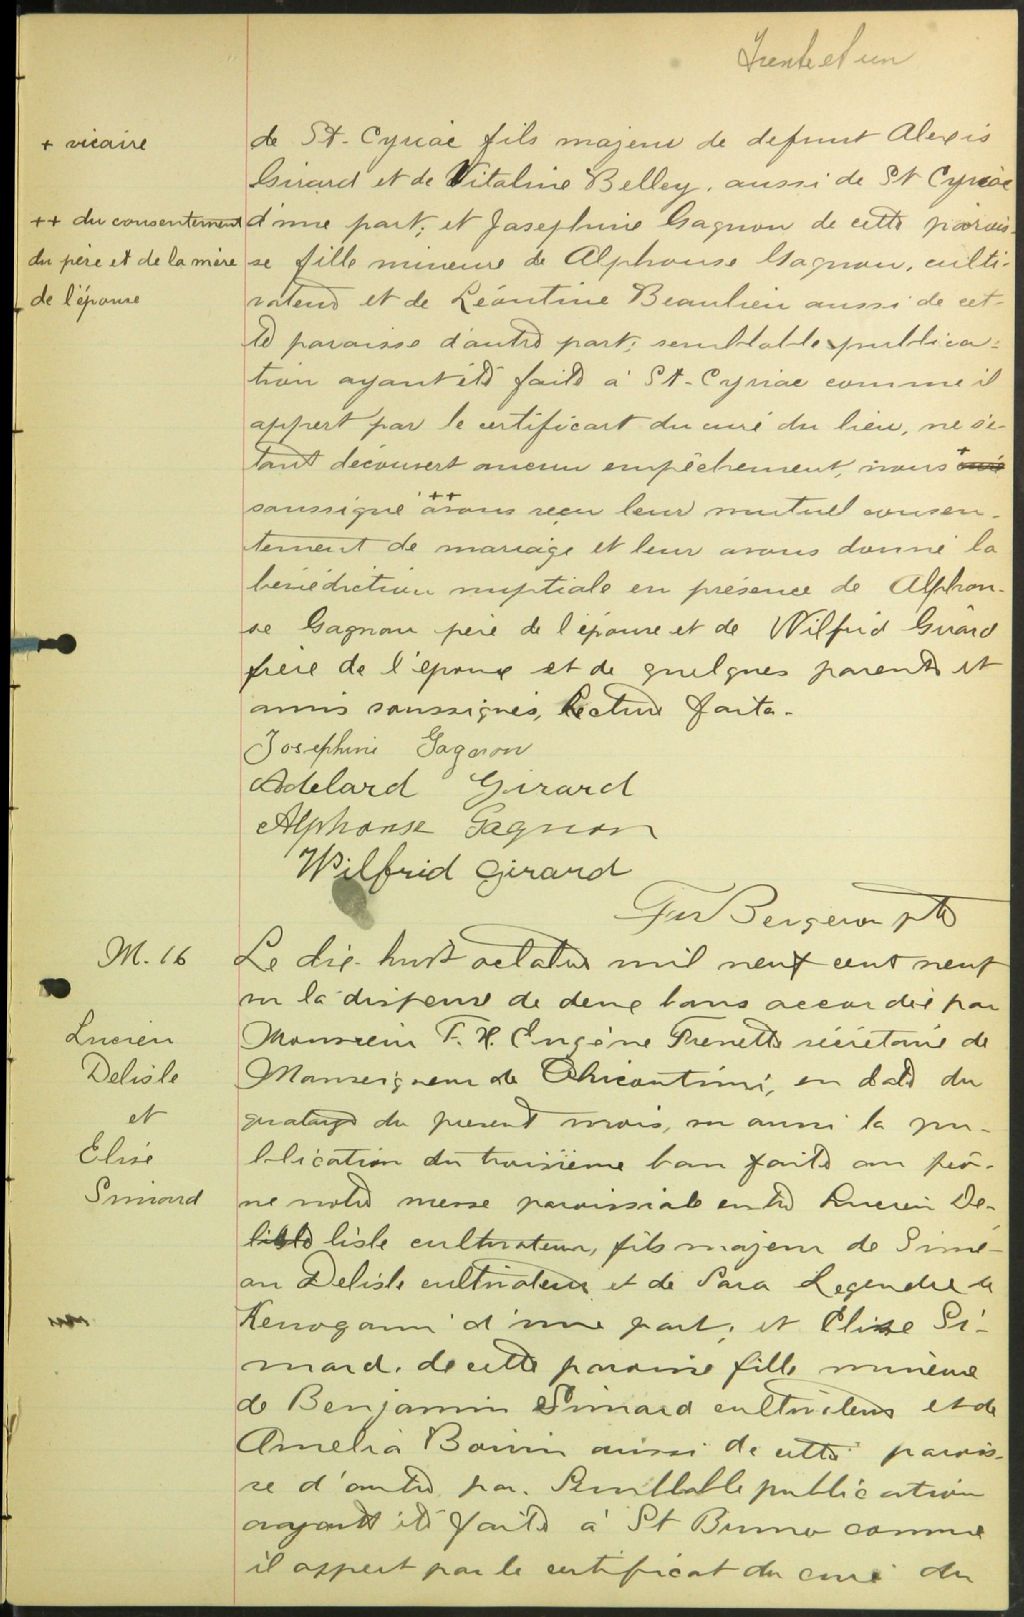 Trente et un
+ vicaire
de St-Cyriac fils majeur de defunt Alexis
Girard et de Vitaline Belley, aussi de St Cyriac
++ du consentement
du père et de la mère
de l'épouse
d'une part, et Josephine Gagnon de cette parois-
se fille mineure de Alphonse Gagnon, culti-
vateur et de Léontine Beaulieu aussi de cet-
te paroisse d'autre part; semblable publica-
tion ayant été faite à St-Cyriac comme il
appert par le certificat du curé du lieu, ne s'é-
tant découvert aucun empêchement, nous + curé
soussigné ++ avons reçu leur mutuel consen-
tement de mariage et leur avons donné la
bénédiction nuptiale en présence de Alphon-
se Gagnon père de l'épouse et de Wilfrid Girard
frère de l'époux et de quelques parents et
amis soussignés, Lecture faite.
Josephine Gagnon
Adelard Girard
Alphonse Gagnon
Wilfrid Girard
Bergeron ptre
M. 16
Lucien
Delisle
et
Elise
Simard
Le dix-huit octobre mil neuf cent neuf
vu la dispense de deux bans accordée par
Monsieur F. X. Eugène Frenette sécrétaire de
Monseigneur de Chicoutimi, en date du
quatorze du présent mois, vu aussi la pu-
blication du troisième ban faite au prô-
ne notre messe paroissiale entre Lucien De-
lisle cultivateur, fils majeur de Simé-
on Delisle cultivateur et de Sara Legendre de
Kenogami d'une part; et Elise Si-
mard. de cette paroisse fille mineure
de Benjamin Simard cultivateur et de
Amelia Boivin aussi de cette parois-
se d'autre par. Semblable publication
ayant été faite à St Bruno comme
il appert par le certificat du curé du